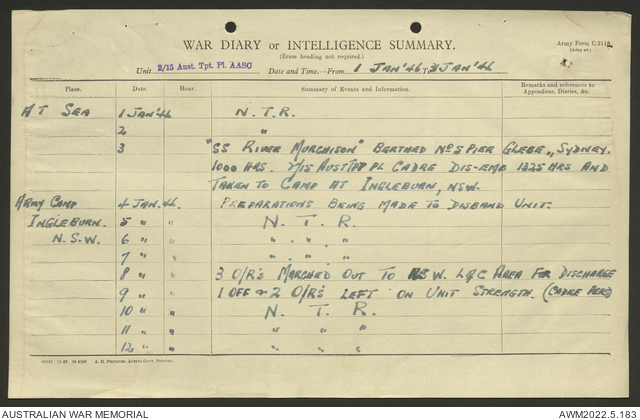 WAR DIARY or INTELLIGENCE SUMMARY.
(Erase heading not required.)
Army Form C.2118.
Unit 2/15 Aust. Tpt. Pl. AASC Date and Time—From 1 JAN '46 To 31 JAN '46
Place. Date. Hour. Summary of Events and Information. Remarks and references to Appendices, Diaries, &c.
AT SEA 1 JAN '46 N.T.R.
2 "
3 "SS RIVER MURCHISON" BERTHED No 5 PIER GLEBE, SYDNEY.
1000 HRS. 2/15 AUST TPT PL CADRE DIS-EMB 1225 HRS AND
TAKEN TO CAMP AT INGLEBURN, NSW.
ARMY CAMP 4 JAN. 46. PREPARATIONS BEING MADE TO DISBAND UNIT.
INGLEBURN. 5 " " N. T. R.
N.S.W. 6 " " " . " . "
7 " " " . " . "
8 " " 3 O/R's MARCHED OUT TO NSW. L of C AREA FOR DISCHARGE
9 " " 1 OFF & 2 O/R's LEFT ON UNIT STRENGTH. (CADRE PERS)
10 " " N. T. R.
11 " " " " "
12 " " " " "
A. H. Pettifer, Acting Govt. Printer.
AUSTRALIAN WAR MEMORIAL AWM2022.5.183